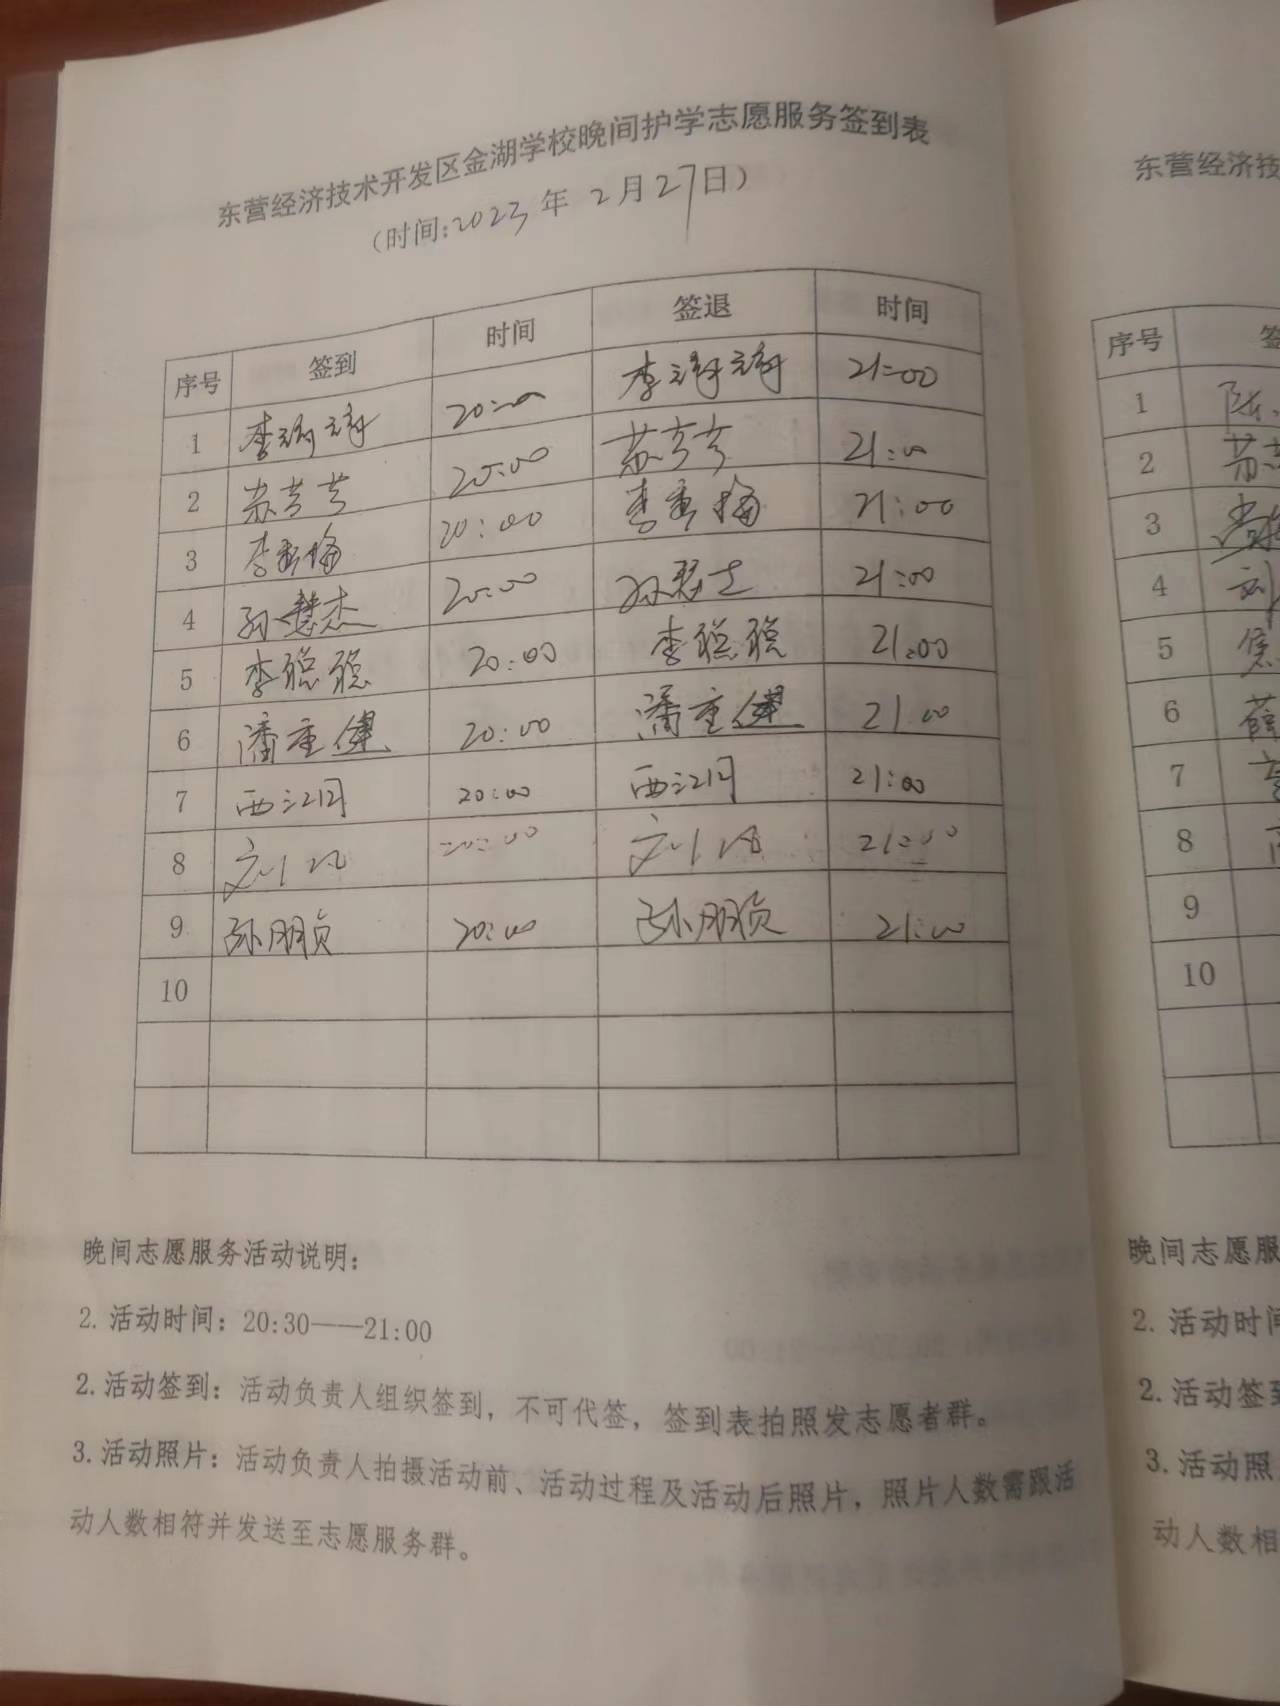 东营经济技术开发区金湖学校晚间护学志愿服务签到表
（时间:2023年2月27日）
序号 签到 时间 签退 时间
1 李 20:00 李 21:00
2 苏芳芳 20:00 苏芳芳 21:00
3 李秀梅 20:00 李秀梅 21:00
4 孙慧杰 20:00 孙慧杰 21:00
5 李聪聪 20:00 李聪聪 21:00
6 潘重健 20:00 潘重健 21:00
7 20:00 21:00
8 20:00 21:00
9 孙朋贞 20:00 孙朋贞 21:00
10
晚间志愿服务活动说明：
2. 活动时间：20:30——21:00
2. 活动签到：活动负责人组织签到，不可代签，签到表拍照发志愿者群。
3. 活动照片：活动负责人拍摄活动前、活动过程及活动后照片，照片人数需跟活
动人数相符并发送至志愿服务群。
东营经济技
序号
1
2
3
4
5
6
7
8
9
10
晚间志愿服
2. 活动时间
2. 活动签到
3. 活动照
动人数相